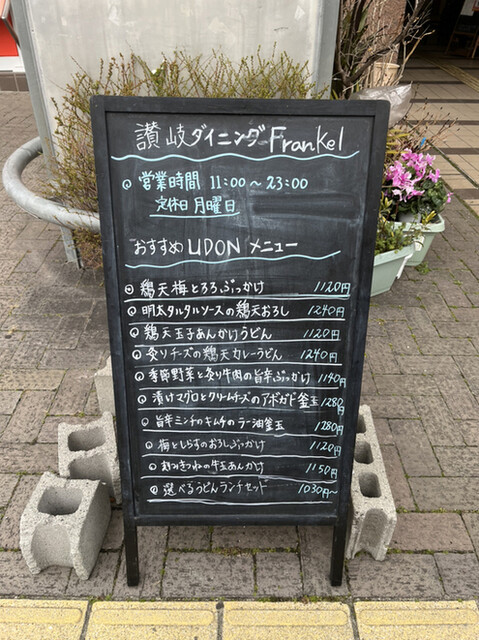 讃岐ダイニングFrankel
営業時間 11:00～23:00
定休日 月曜日
おすすめUDONメニュー
鶏天梅とろろぶっかけ 1120円
明太タルタルソースの鶏天おろし 1240円
鶏天玉子あんかけうどん 1120円
炙りチーズの鶏天カレーうどん 1240円
季節野菜と炙り牛肉の旨辛ぶっかけ 1140円
漬けマグロとクリームチーズのアボガド釜玉 1280円
旨辛ミンチのキムチのラー油釜玉 1280円
梅としらすのおろしぶっかけ 1120円
きざみきつねの牛玉あんかけ 1150円
選べるうどんランチセット 1030円～